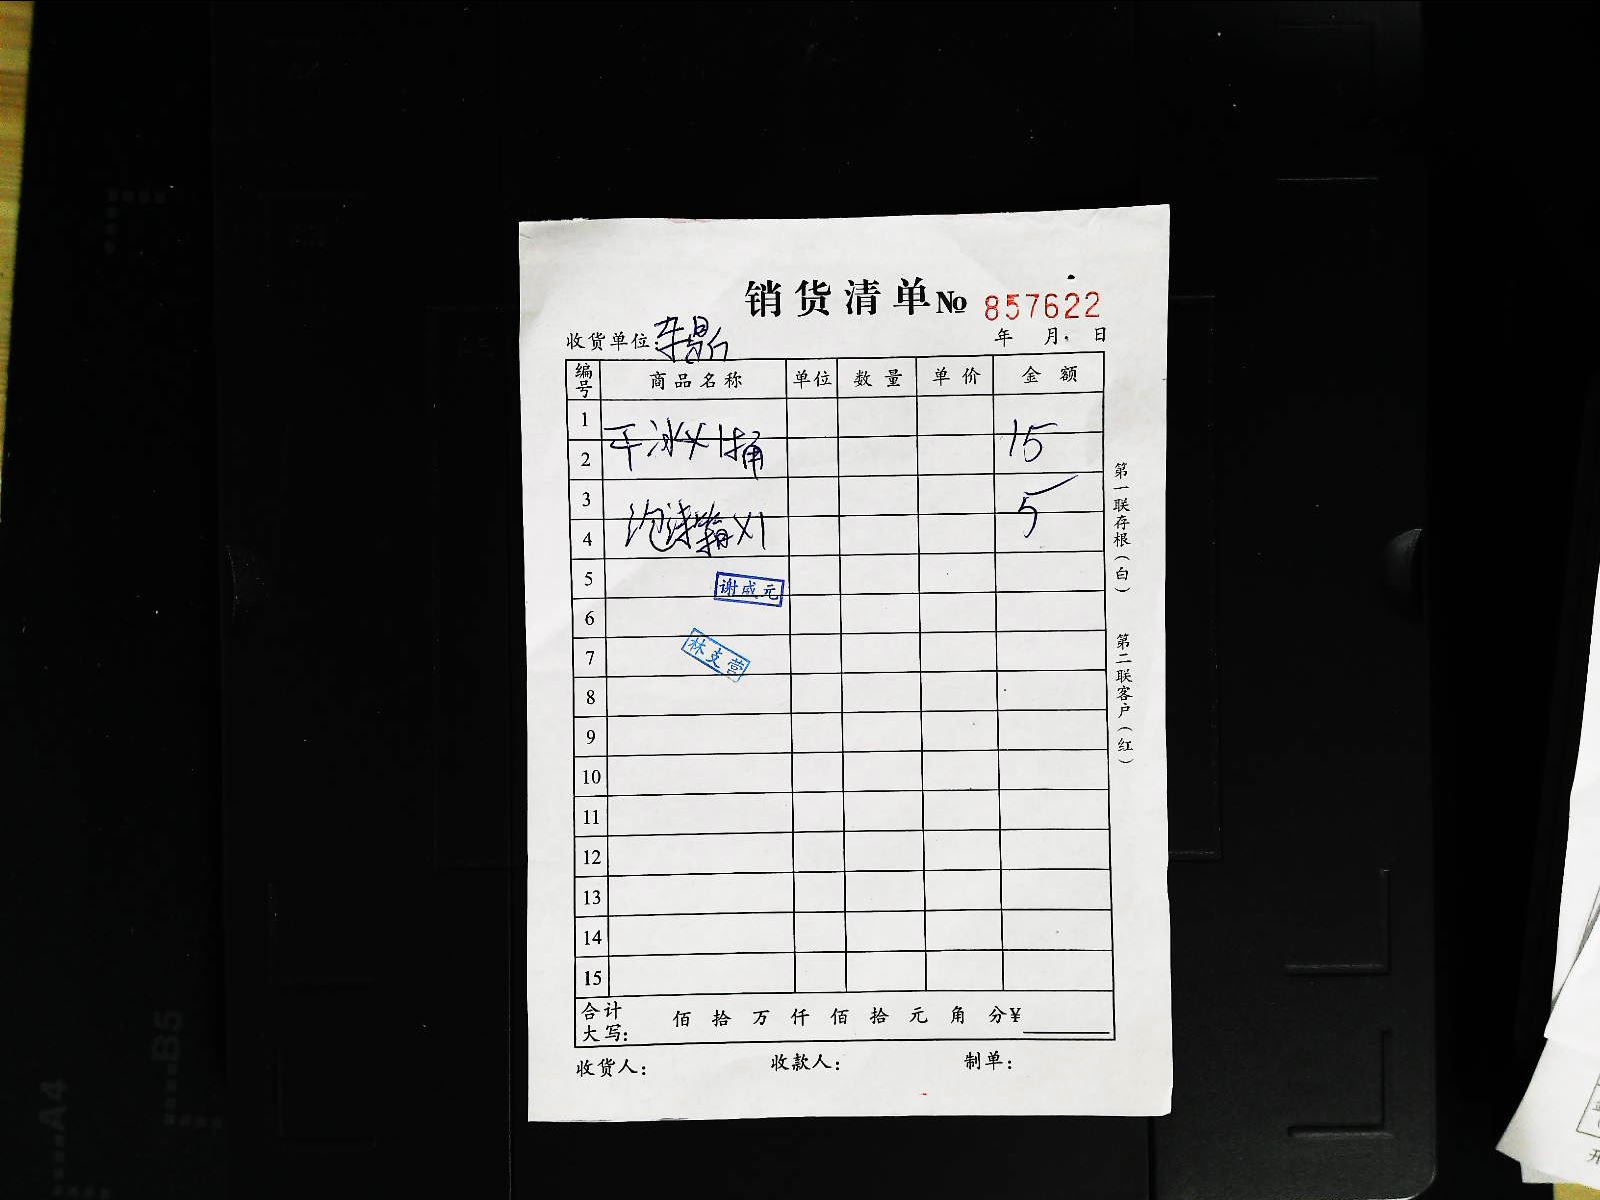 销货清单№ 857622
收货单位:
年 月 日
编号 商品名称 单位 数量 单价 金额
1
干冰×1桶 15
2
3
泡沫箱×1 5
4
5
谢成元
6
7
林支营
8
9
10
11
12
13
14
15
合计大写: 佰 拾 万 仟 佰 拾 元 角 分¥
收货人: 收款人: 制单:
第一联存根(白)
第二联客户(红)
A4
B5